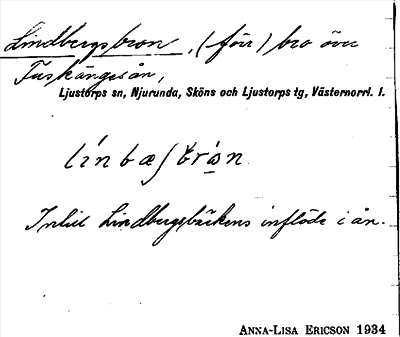 Lindbergsbron, (förr) bro över
Tuskängesån,
Ljustorps sn, Njurunda, Sköns och Ljustorps tg, Västernorrl. l.
Intill Lindbergsbäckens inflöde i ån.
ANNA-LISA ERICSON 1934